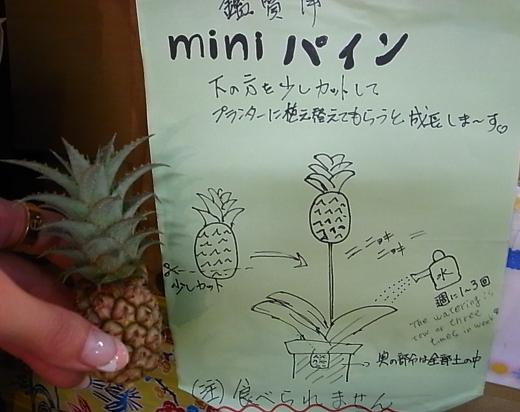 鑑賞用
mini パイン
下の方を少しカットして
プランターに植え替えてもらうと、成長しま〜す♡
ニョキ
ニョキ
水
週に1~3回
少しカット
The watering is
tow or three
times in week
実の部分は全部土の中
(注) 食べられません